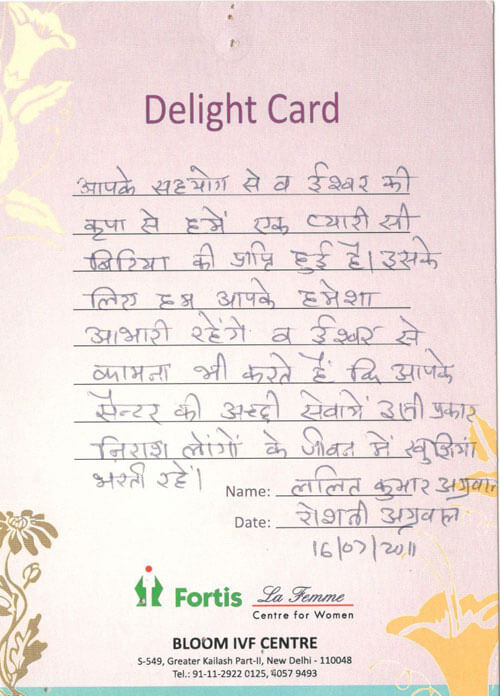 Delight Card
आपके सहयोग से व ईश्वर की
कृपा से हमें एक प्यारी सी
बिटिया की प्राप्ति हुई है। इसके
लिए हम आपके हमेशा
आभारी रहेंगे व ईश्वर से
कामना भी करते हैं कि आपके
सैन्टर की अच्छी सेवायें इसी प्रकार
निराश लोगों के जीवन में खुशियां
भरती रहें।
Name: ललित कुमार अग्रवाल
Date: रोशनी अग्रवाल
16/07/2011
Fortis La Femme
Centre for Women
BLOOM IVF CENTRE
S-549, Greater Kailash Part-II, New Delhi - 110048
Tel.: 91-11-2922 0125, 4057 9493